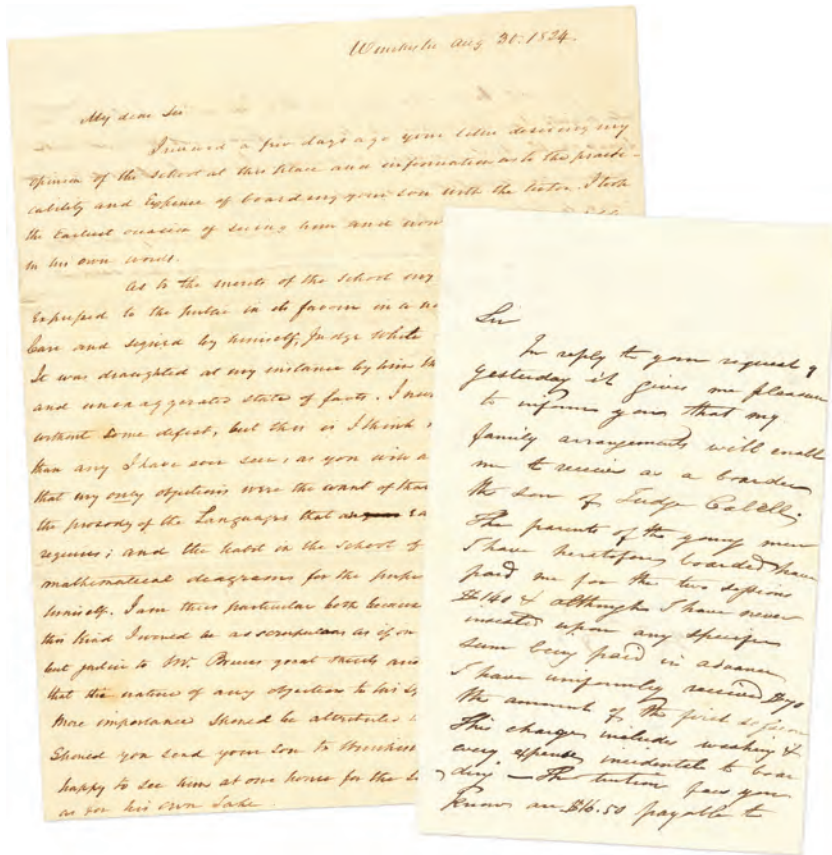 Winchester Aug 30. 1824.
My dear Sir
I received a few days ago your letter desiring my
opinion of the school at this place and information as to the practi-
cability and Expense of boarding your son with the tutor. I took
the Earliest occasion of seeing him and now
in his own words.
As to the merits of the school my
Expressed to the public in its favour in a
Care and signed by himself, Judge White
It was draughted at my instance by him
and unexaggerated state of facts. I never
without some defect, but this is I think
than any I have ever seen; as you will
that my only objections were the want of that
the prosody of the Languages that
requires; and the habit in the school of
mathematical diagrams for the
himself. I am thus particular both because
this kind I would be as scrupulous as if on
but justice to Mr. Bruces great
that the nature of any objection to his
more importance should be attributed
Should you send your son to Winchester
happy to see him at our house for the
as for his own Sake.
Sir
In reply to your request of
yesterday it gives me pleasure
to inform you that my
family arrangements will enable
me to receive as a boarder
the son of Judge Cabell;
The parents of the young men
I have heretofore boarded have
paid me for the two sessions
$140 & although I have never
insisted upon any specific
sum being paid in advance
I have uniformly received $70
the amount of the first session
This charge includes washing &
every expense incidental to boar
ding — The tuition fees you
know are $16.50 payable to